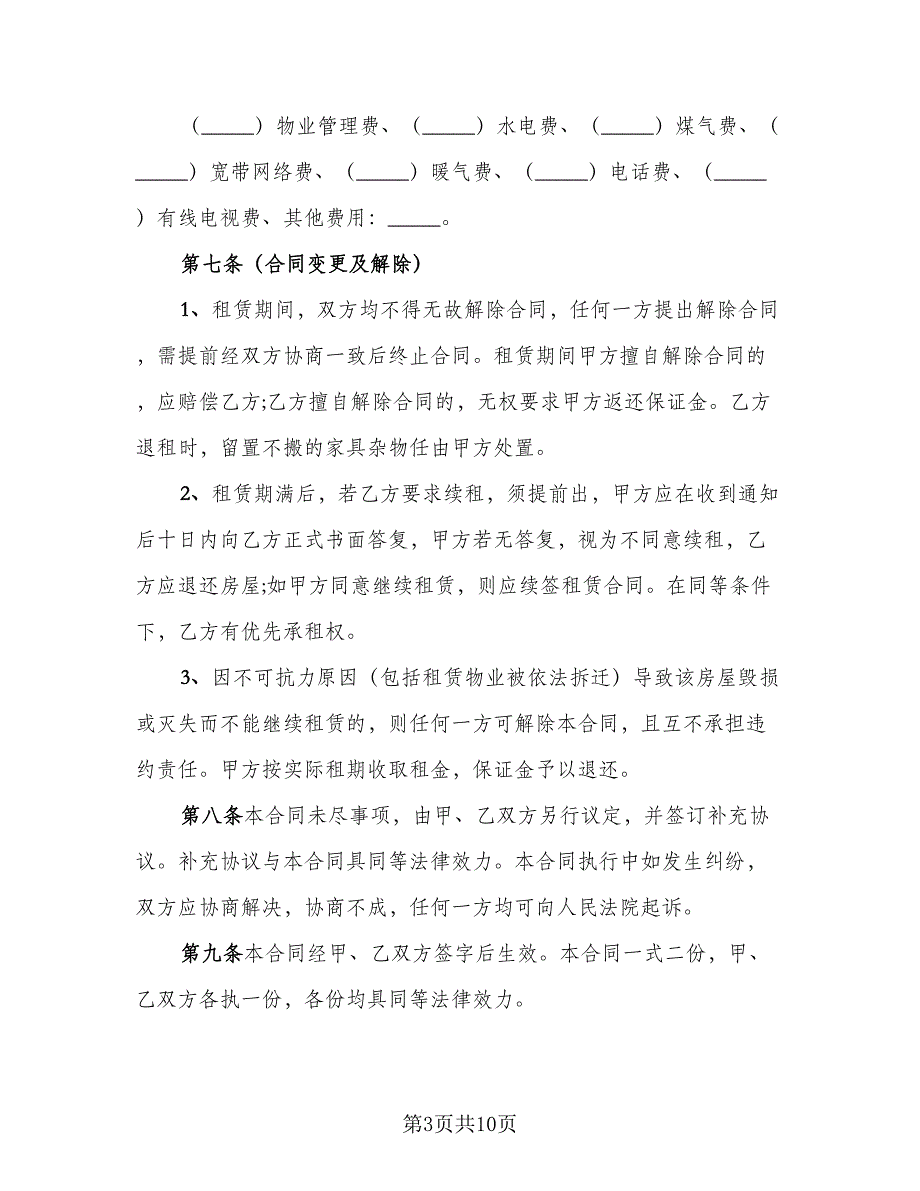 （_____）物业管理费、（_____）水电费、（_____）煤气费、（
_____）宽带网络费、（_____）暖气费、（_____）电话费、（_____
）有线电视费、其他费用：_____。
第七条（合同变更及解除）
1、租赁期间，双方均不得无故解除合同，任何一方提出解除合同
，需提前经双方协商一致后终止合同。租赁期间甲方擅自解除合同的
，应赔偿乙方;乙方擅自解除合同的，无权要求甲方返还保证金。乙方
退租时，留置不搬的家具杂物任由甲方处置。
2、租赁期满后，若乙方要求续租，须提前出，甲方应在收到通知
后十日内向乙方正式书面答复，甲方若无答复，视为不同意续租，乙
方应退还房屋;如甲方同意继续租赁，则应续签租赁合同。在同等条件
下，乙方有优先承租权。
3、因不可抗力原因（包括租赁物业被依法拆迁）导致该房屋毁损
或灭失而不能继续租赁的，则任何一方可解除本合同，且互不承担违
约责任。甲方按实际租期收取租金，保证金予以退还。
第八条本合同未尽事项，由甲、乙双方另行议定，并签订补充协
议。补充协议与本合同具同等法律效力。本合同执行中如发生纠纷，
双方应协商解决，协商不成，任何一方均可向人民法院起诉。
第九条本合同经甲、乙双方签字后生效。本合同一式二份，甲、
乙双方各执一份，各份均具同等法律效力。
第3页共10页